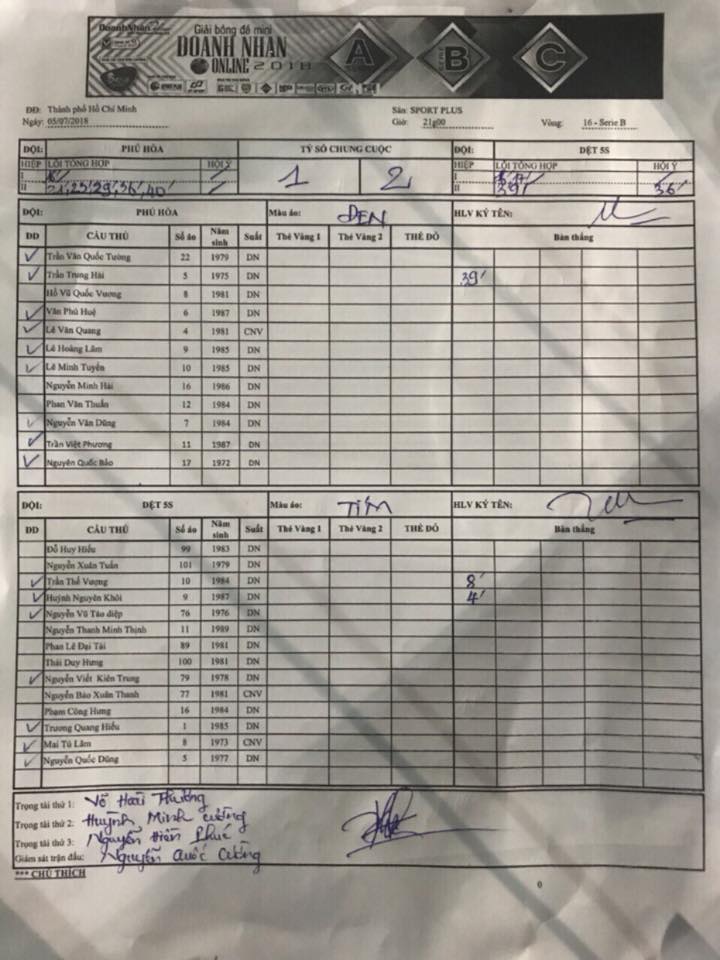 DoanhNhân
Giải bóng đá mini
DOANH NHÂN
ONLINE 2018
A B C
ĐĐ: Thành phố Hồ Chí Minh Sân: SPORT PLUS
Ngày: 05/07/2018 Giờ: 21g00 Vòng: 16 - Serie B
ĐỘI: PHÚ HÒA TỶ SỐ CHUNG CUỘC ĐỘI: DỆT 5S
HIỆP LỖI TỔNG HỢP HỘI Ý 1 2 HIỆP LỖI TỔNG HỢP HỘI Ý
I I
II 21, 23, 29, 36, 40' II 39' 36'
ĐỘI: PHÚ HÒA Màu áo: ĐEN HLV KÝ TÊN:
DD CẦU THỦ Số áo Năm sinh Suất Thẻ Vàng 1 Thẻ Vàng 2 THẺ ĐỎ Bàn thắng
Trần Văn Quốc Tường 22 1979 DN
Trần Trung Hải 5 1975 DN 39'
Hồ Vũ Quốc Vương 8 1981 DN
Văn Phú Huệ 6 1987 DN
Lê Văn Quang 4 1981 CNV
Lê Hoàng Lâm 9 1985 DN
Lê Minh Tuyền 10 1985 DN
Nguyễn Minh Hải 16 1986 DN
Phan Văn Thuấn 12 1984 DN
Nguyễn Văn Dũng 7 1984 DN
Trần Việt Phương 11 1987 DN
Nguyễn Quốc Bảo 17 1972 DN
ĐỘI: DỆT 5S Màu áo: TÍM HLV KÝ TÊN:
DD CẦU THỦ Số áo Năm sinh Suất Thẻ Vàng 1 Thẻ Vàng 2 THẺ ĐỎ Bàn thắng
Đỗ Huy Hiếu 99 1983 DN
Nguyễn Xuân Tuấn 101 1979 DN
Trần Thế Vượng 10 1984 DN 8'
Huỳnh Nguyên Khôi 9 1987 DN 4'
Nguyễn Vũ Tảo điệp 76 1976 DN
Nguyễn Thanh Minh Thịnh 11 1989 DN
Phan Lê Đại Tài 89 1981 DN
Thái Duy Hưng 100 1981 DN
Nguyễn Viết Kiên Trung 79 1978 DN
Nguyễn Bảo Xuân Thanh 77 1981 CNV
Phạm Công Hưng 16 1984 DN
Trương Quang Hiếu 1 1985 DN
Mai Tú Lâm 8 1973 CNV
Nguyễn Quốc Dũng 5 1977 DN
Trọng tài thứ 1: Võ Hoài Thương
Trọng tài thứ 2: Huỳnh Minh Cường
Trọng tài thứ 3: Nguyễn Hiền Phúc
Giám sát trận đấu: Nguyễn Quốc Cường
*** CHÚ THÍCH
0